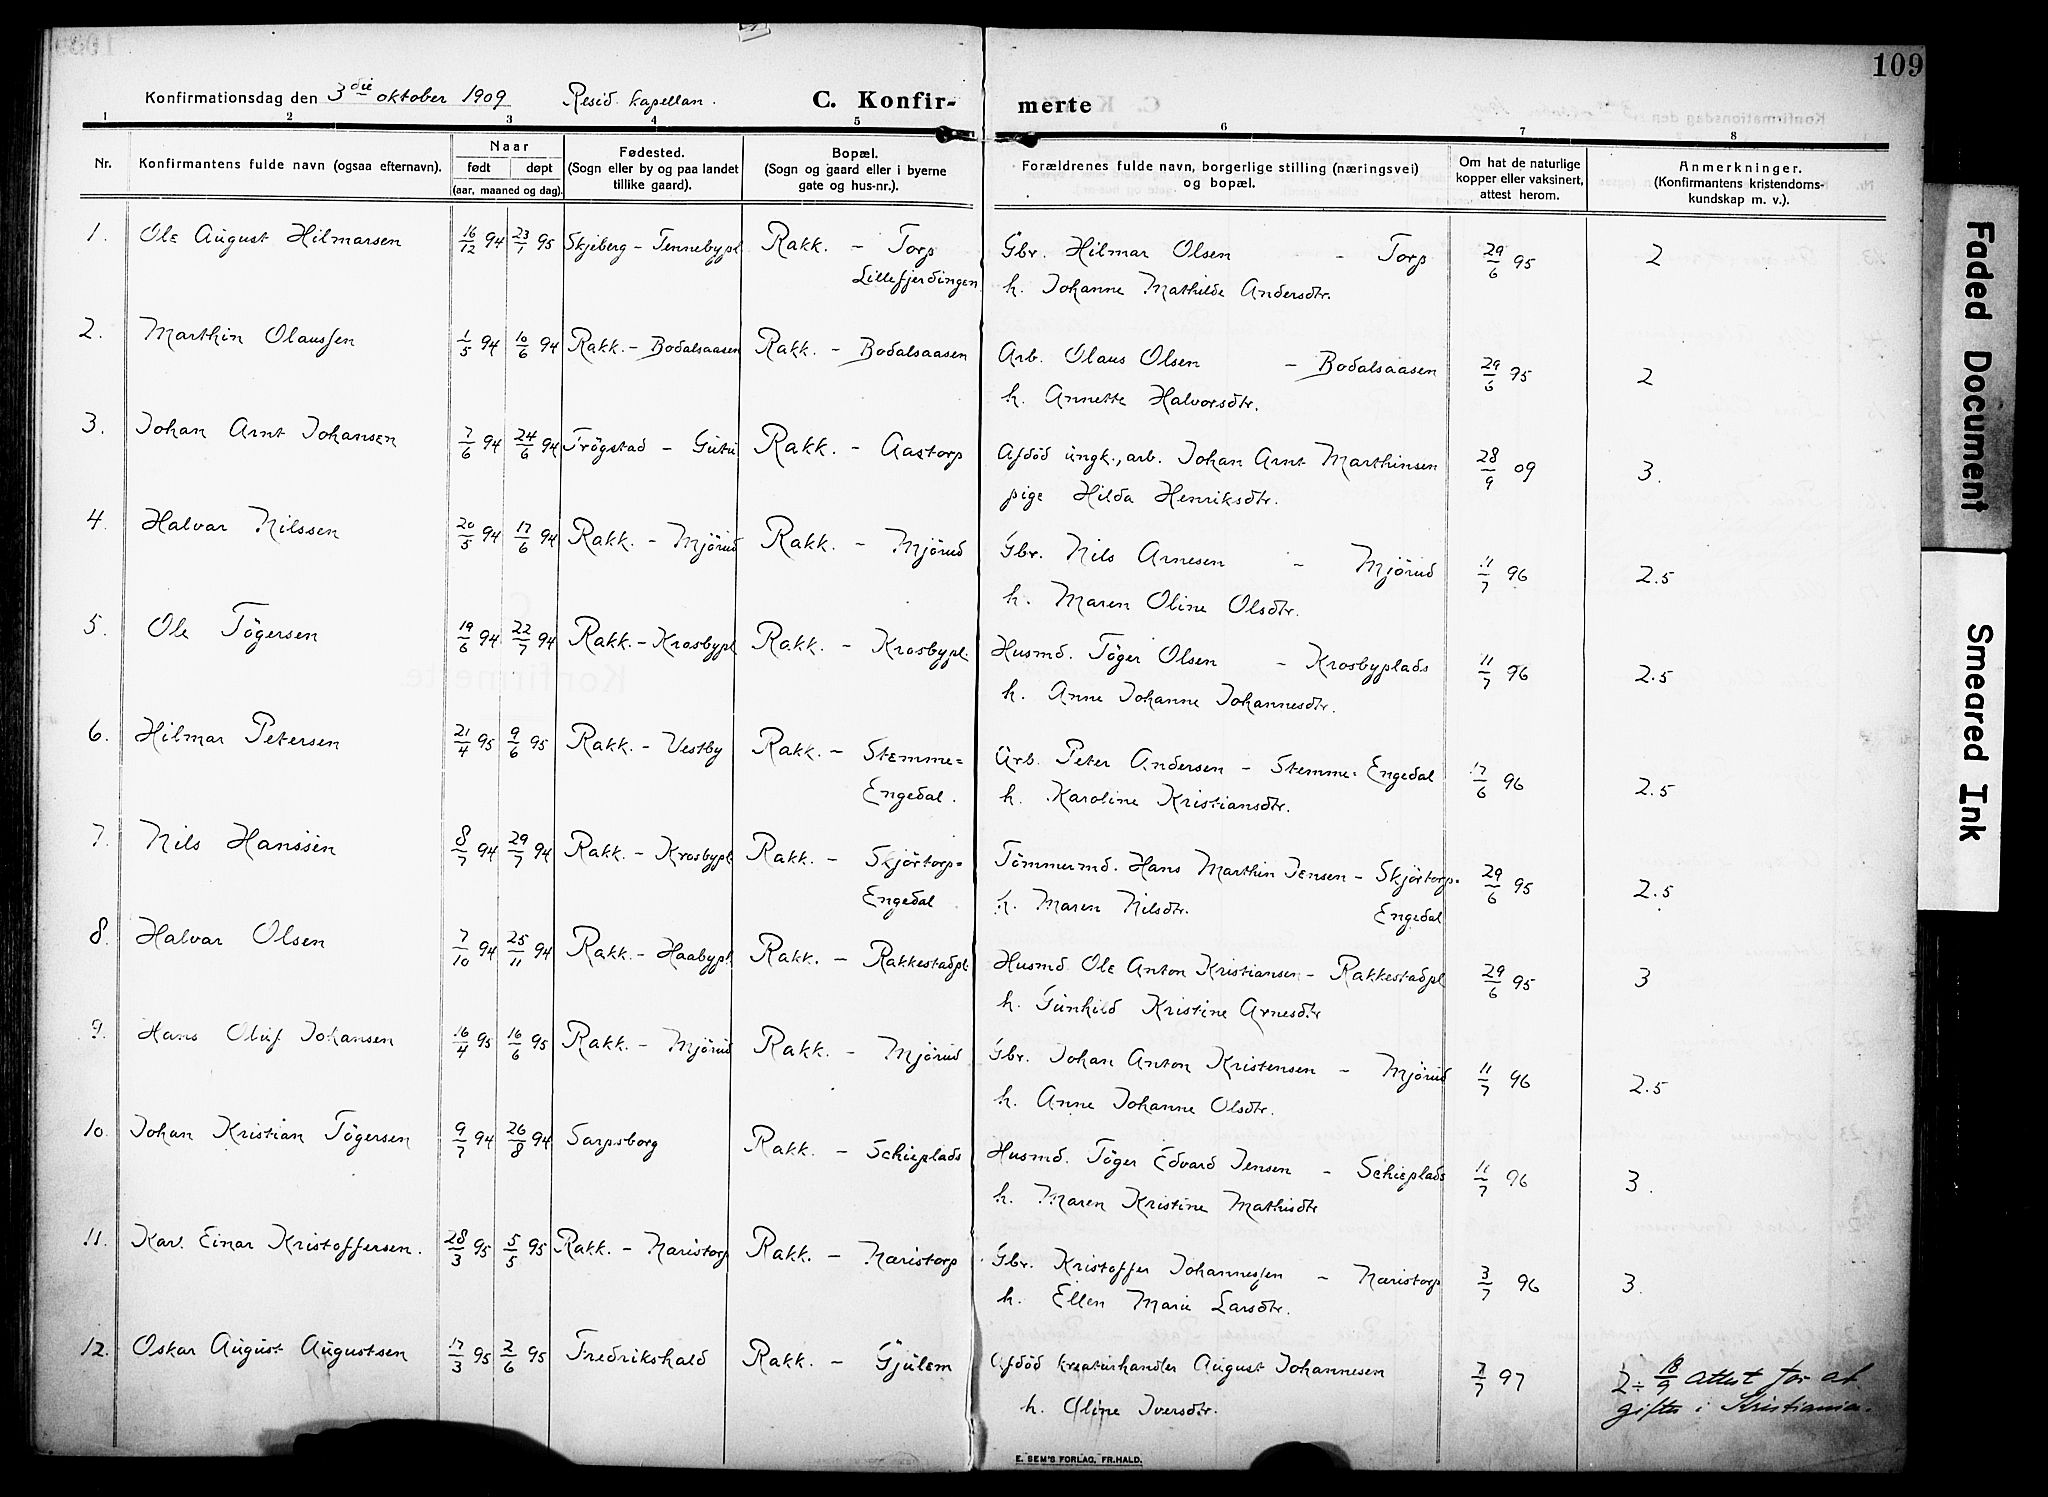 109
Konfirmationsdag den 3die oktober 1909 Resid. kapellan. C. Konfir- merte
1 2 3 4 5 6 7 8
Nr. Konfirmantens fulde navn (ogsaa efternavn). Naar født døpt (aar, maaned og dag). Fødested. (Sogn eller by og paa landet tillike gaard). Bopæl. (Sogn og gaard eller i byerne gate og hus-nr.). Forældrenes fulde navn, borgerlige stilling (næringsvei) og bopæl. Om hat de naturlige kopper eller vaksinert, attest herom. Anmerkninger. (Konfirmantens kristendoms-kundskap m. v.).
1. Ole August Hilmarsen 16/12 94 23/1 95 Skjeberg - Tennebypl Rakk. - Torp Gbr. Hilmar Olsen - Torp 29/6 95 2
Lillefjerdingen h. Johanne Mathilde Andersdtr.
2. Marthin Olaussen 1/5 94 10/6 94 Rakk. - Bodalsaasen Rakk. - Bodalsaasen Arb. Olaus Olsen - Bodalsaasen 29/6 95 2
h. Annette Halvorsdtr.
3. Johan Arnt Johansen 7/6 94 24/6 94 Trögstad - Gutu Rakk. - Aastorp Afdöd ungk., arb. Johan Arnt Marthinsen 28/9 09 3.
pige Hilda Henriksdtr.
4. Halvar Nilssen 20/5 94 17/6 94 Rakk. - Mjörud Rakk. - Mjörud Gbr. Nils Arnesen - Mjörud 11/7 96 2.5
h. Maren Oline Olsdtr.
5. Ole Tögersen 19/6 94 22/7 94 Rakk. - Krosbypl Rakk. - Krosbypl. Husmd. Töger Olsen - Krosbyplads 11/7 96 2.5
h. Anne Johanne Johannesdtr.
6. Hilmar Petersen 21/4 95 9/6 95 Rakk. - Vestby Rakk. - Stemme= Arb. Peter Andersen - Stemme=Engedal 17/6 96 2.5
Engedal. h. Karoline Kristiansdtr.
7. Nils Hanssen 8/7 94 29/7 94 Rakk. - Krosbypl. Rakk. - Skjörtorp= Tömmermd. Hans Marthin Jensen - Skjörtorp= 29/6 95 2.5
Engedal h. Maren Nilsdtr. Engedal
8. Halvar Olsen 7/10 94 25/11 94 Rakk. - Haabypl. Rakk. - Rakkestadpl. Husmd. Ole Anton Kristiansen - Rakkestadpl 29/6 95 3
h. Gunhild Kristine Arnesdtr
9. Hans Oluf Johansen 16/4 95 16/6 95 Rakk. - Mjörud Rakk. - Mjörud Gbr. Johan Anton Kristensen - Mjörud 11/7 96 2.5
h. Anne Johanne Olsdtr.
10. Johan Kristian Tögersen 9/7 94 26/8 94 Sarpsborg Rakk. - Schieplads Husmd. Töger Edvard Jensen - Schieplads 11/7 96 3.
h. Maren Kristine Mathisdtr
11. Karl Einar Kristoffersen. 28/3 95 5/5 95 Rakk. - Næristorp Rakk. - Næristorp Gbr. Kristoffer Johannessen - Næristorp 3/7 96 3.
h. Ellen Marie Larsdtr.
12. Oskar August Augustsen 17/3 95 2/6 95 Fredrikshald Rakk. - Gjulem Afdöd kreaturhandler August Johannesen 7/7 97 2÷ 18/9 attest for at
h. Oline Iversdtr. giftes i Kristiania.
E. SEM'S FORLAG, FR.HALD.
Faded Document
Smeared Ink